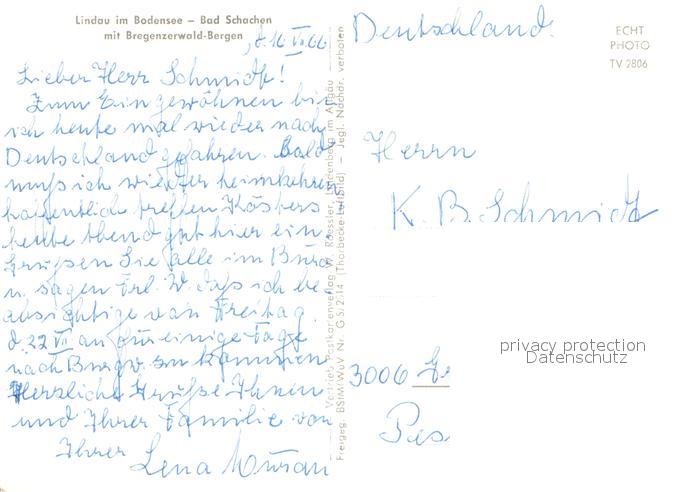 Lindau im Bodensee – Bad Schachen
mit Bregenzerwald-Bergen
d. 16 VII 66
Lieber Herr Schmidt!
Zum Eingewöhnen bin
ich heute mal wieder nach
Deutschland gefahren. Bald
muß ich wieder heimkehren
hoffentlich treffen Käsbers
heute Abend gut hier ein.
Grüßen Sie alle im Büro
u. sagen Frl. W. daß ich be-
absichtige von Freitag
d. 22 VII an für einige Tage
nach Burgd. zu kommen
Herzliche Grüße Ihnen
und Ihrer Familie von
Ihrer
Lena
Vertrieb: Postkartenverlag W. Roessler, Lindenberg im Allgäu
Freigeg. BStMfWuV Nr. GS/2114 (Thorbecke-Luftbild) – Jegl. Nachdr. verboten
Deutschland.
ECHT
PHOTO
TV 2806
Herrn
K. B. Schmidt
privacy protection
Datenschutz
3006
Pes